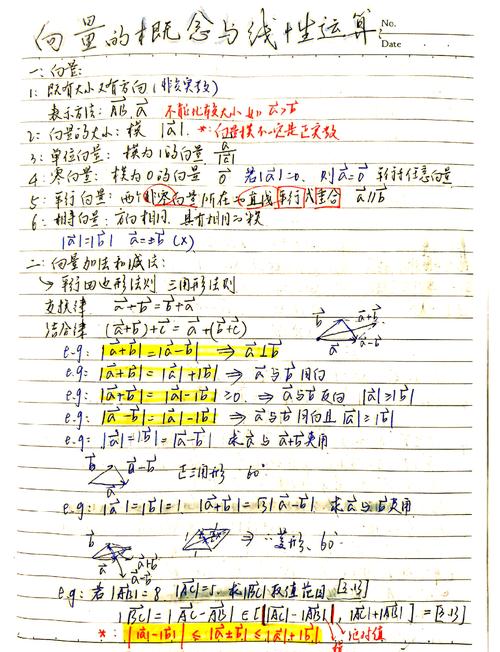 向量的概念与线性运算
No.
Date
一：向量：
1：既有大小又有方向（非实数）
表示方法：AB→, a→ 不能比较大小 如 a→>b→
2：向量的大小：模 |a→|. *：向量模不一定是正实数
3：单位向量：模为1的向量 a→/|a→|
4：零向量：模为0的向量 0→ 若|a→|=0，则a→=0→ 平行于任意向量
5：平行向量：两个非零向量所在直线平行或重合 a→∥b→
6：相等向量：方向相同，具有相同的模
|a→|=|b→| a→=±b→ (×)
二：向量加法和减法：
↳ 平行四边形法则 三角形法则
交换律 a→+b→=b→+a→
结合律 (a→+b→)+c→=a→+(b→+c→)
b→ a→+b→ a→ a→-b→
e.g: |a→+b→|=|a→-b→| ⇒ a→⊥b→
e.g: |a→+b→|=|a→|+|b→| ⇒ a→与b→同向
e.g: |a→+b→|=|a→|-|b→|≥0. ⇒ a→与b→反向 |a→|≥|b→|
e.g: |a→-b→|=|a→|-|b→| ⇒ a→与b→同向且|a→|≥|b→|
e.g: |a→|=|b→|=|a→-b→| 求a→与a→+b→夹角
b→ a→-b→ a→ 正三角形 60°
e.g: |a→|=|b→|=1 |a→+b→|=√3|a→-b→| 求a→与b→夹角
b→ a→ a→+b→ a→-b→ ⇒ ∴菱形、60°
e.g: 若|AB→|=8 |AC→|=5. 求|BC→|取值范围 [3,13]
|BC→|=|AC→-AB→|∈[||AC→|-|AB→||, |AC→|+|AB→|]=[3,13]
*: ||a→|-|b→||≤|a→±b→|≤|a→|+|b→| 绝对值
模